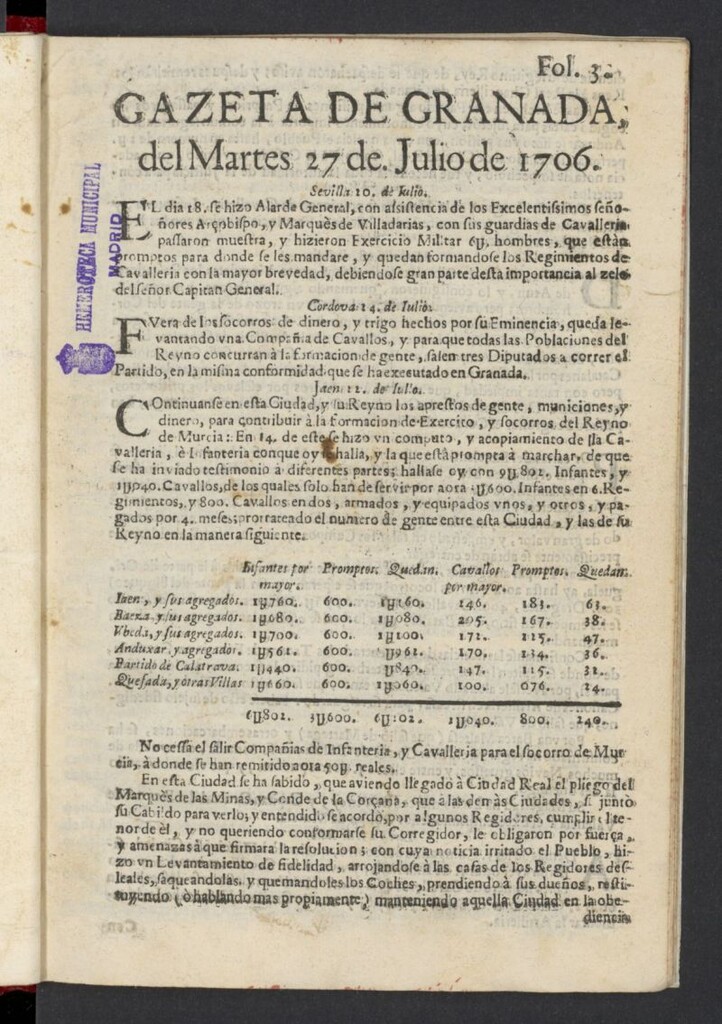 Fol. 3.
GAZETA DE GRANADA,
del Martes 27 de. Julio de 1706.
HEMEROTECA MUNICIPAL
MADRID
Sevilla 20. de Iulio.
EL dia 18. se hizo Alarde General, con assistencia de los Excelentissimos seño-
ñores Arçobispo, y Marquès de Villadarias, con sus guardias de Cavalleria
passaron muestra, y hizieron Exercicio Militar 6y. hombres, que estàn
promptos para donde se les mandare, y quedan formandose los Regimientos de
Cavalleria con la mayor brevedad, debiendose gran parte desta importancia al zelo
del señor Capitan General.
Cordova 24. de Iulio.
FVera de los socorros de dinero, y trigo hechos por su Eminencia, queda le-
vantando vna Compañia de Cavallos, y para que todas las Poblaciones del
Reyno concurran à la formacion de gente, salen tres Diputados a correr el
Partido, en la misma conformidad que se ha executado en Granada.
Jaen 22. de Iulio.
COntinuanse en esta Ciudad, y su Reyno los aprestos de gente, municiones, y
dinero, para contribuir à la formacion de Exercito, y socorros del Reyno
de Murcia: En 14. de este se hizo vn computo, y acopiamiento de lla Ca-
valleria, è Infanteria con que oy halla, y la que està prompta à marchar, de que
se ha inviado testimonio à diferentes partes; hallase oy con 9y802. Infantes, y
1y040. Cavallos, de los quales solo han de servir por aora 3y600. Infantes en 6. Re-
gimientos, y 800. Cavallos en dos, armados, y equipados vnos, y otros, y pa-
gados por 4. meses; prorrateado el numero de gente entre esta Ciudad, y las de su
Reyno en la manera siguiente.
Infantes por Promptos. Quedan. Cavallos Promptos. Quedan.
mayor. por mayor.
Iaen, y sus agregados. 1y760. 600. 1y160. 246. 183. 63.
Baeza, y sus agregados. 1y680. 600. 1y080. 205. 167. 38.
Vbeda, y sus agregados. 1y700. 600. 1y100. 172. 125. 47.
Anduxar, y agregados. 1y561. 600. y961. 170. 134. 36.
Partido de Calatrava. 1y440. 600. y840. 147. 115. 32.
Quesada, y otras Villas 1y660. 600. 1y060. 100. 076. 24.
6y802. 3y600. 6y202. 1y040. 800. 240.
No cessa el salir Compañias de Infanteria, y Cavalleria para el socorro de Mur
cia, à donde se han remitido aora 50y. reales.
En esta Ciudad se ha sabido, que aviendo llegado à Ciudad Real el pliego del
Marquès de las Minas, y Conde de la Corçana, que à las demàs Ciudades, se juntò
su Cabildo para verlo; y entendido se acordò, por algunos Regidores, cumplir el te-
nor de èl, y no queriendo conformarse su Corregidor, le obligaron por fuerça,
y amenazas à que firmara la resolucion; con cuya noticia irritado el Pueblo, hi-
zo vn Levantamiento de fidelidad, arrojandose à las casas de los Regidores des-
leales, saqueandolas, y quemandoles los Coches, prendiendo à sus dueños, resti-
tuyendo (ò hablando mas propiamente) manteniendo aquella Ciudad en la obe-
diencia